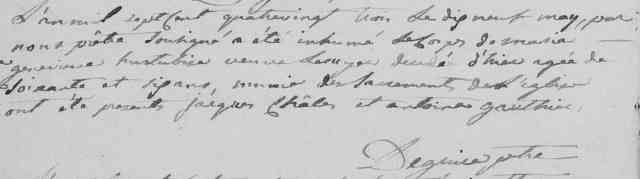 L'an mil sept cent quatrevingt trois le dix neuf may, par
nous prêtre soussigné a été inhumé le Corps de marie
genevieve veuve decedé d'hier agée de
soixante et six ans, munie des sacrements de L'église
ont été presents jacques Châles et antoine gauthier.
Deguise ptre